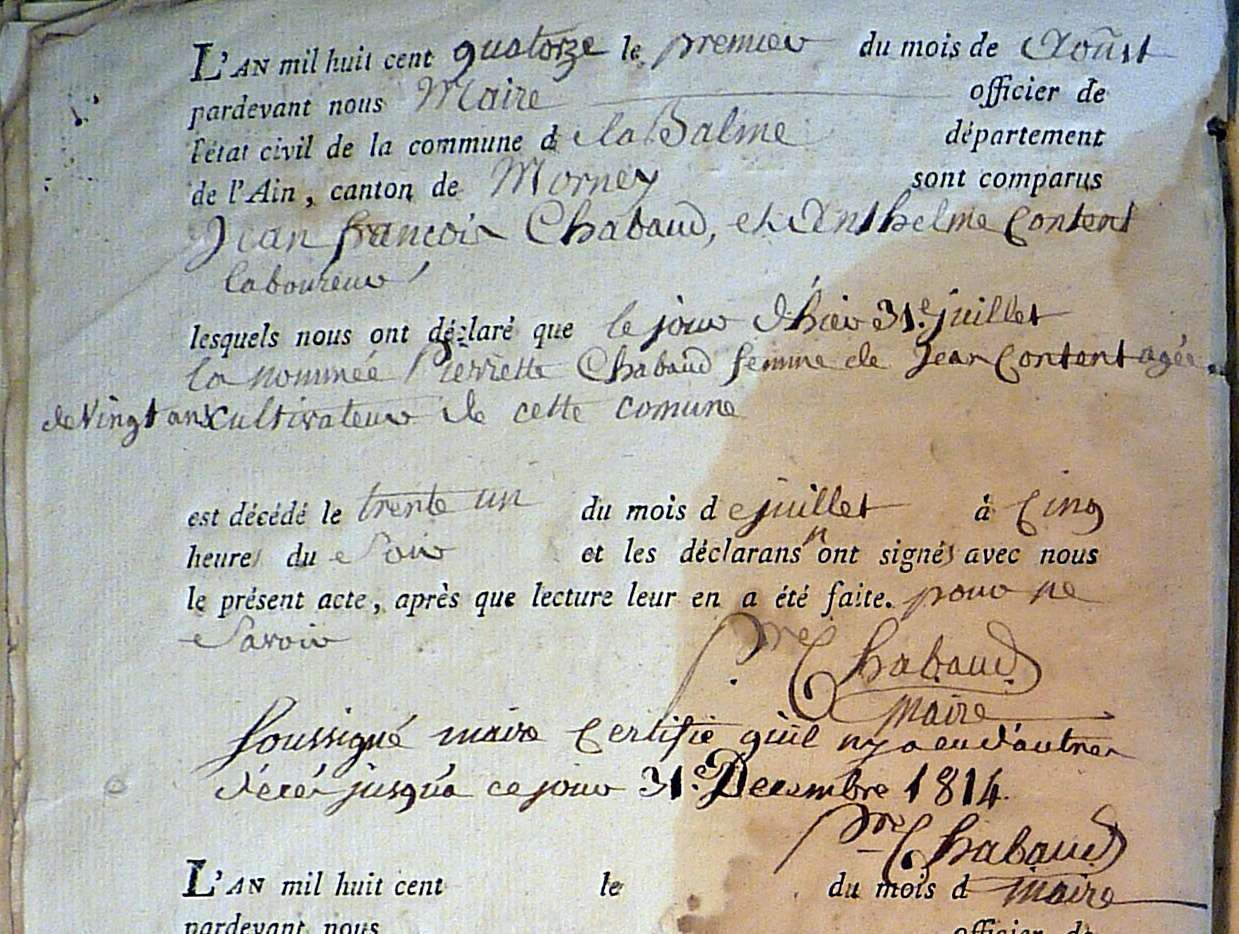 L'AN mil huit cent quatorze le premier du mois de Aoust
pardevant nous Maire officier de
l'état civil de la commune d la Balme département
de l'Ain, canton de Morney sont comparus
Jean françois Chabaud, et Anthelme Content
laboureur
lesquels nous ont déclaré que le jour d'hier 31.e juillet
la nommée Pierrette Chabaud femme de Jean Content agée
de vingt ans cultivateur de cette comune
est décédé le trente un du mois de juillet à Cinq
heures du soir et les déclarans n'ont signés avec nous
le présent acte, après que lecture leur en a été faite. pour ne
Savoir
Chabaud
Maire
Soussigné maire Certifie qu'il ny a eu d'autres
décès jusqu'a ce jour 31.e Decembre 1814.
Chabaud
L'AN mil huit cent le du mois d maire
pardevant nous officier de